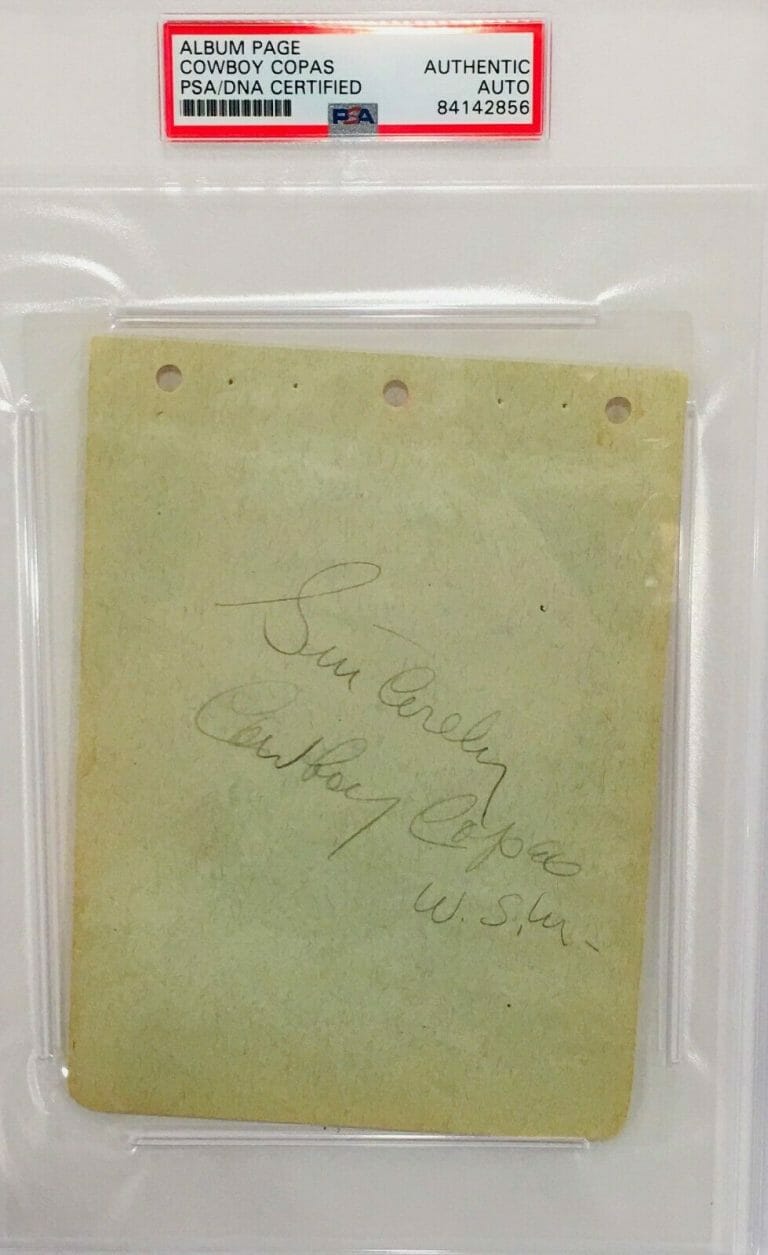 ALBUM PAGE
COWBOY COPAS AUTHENTIC
PSA/DNA CERTIFIED AUTO
PSA 84142856
Sincerely
Cowboy Copas
W.S.M.